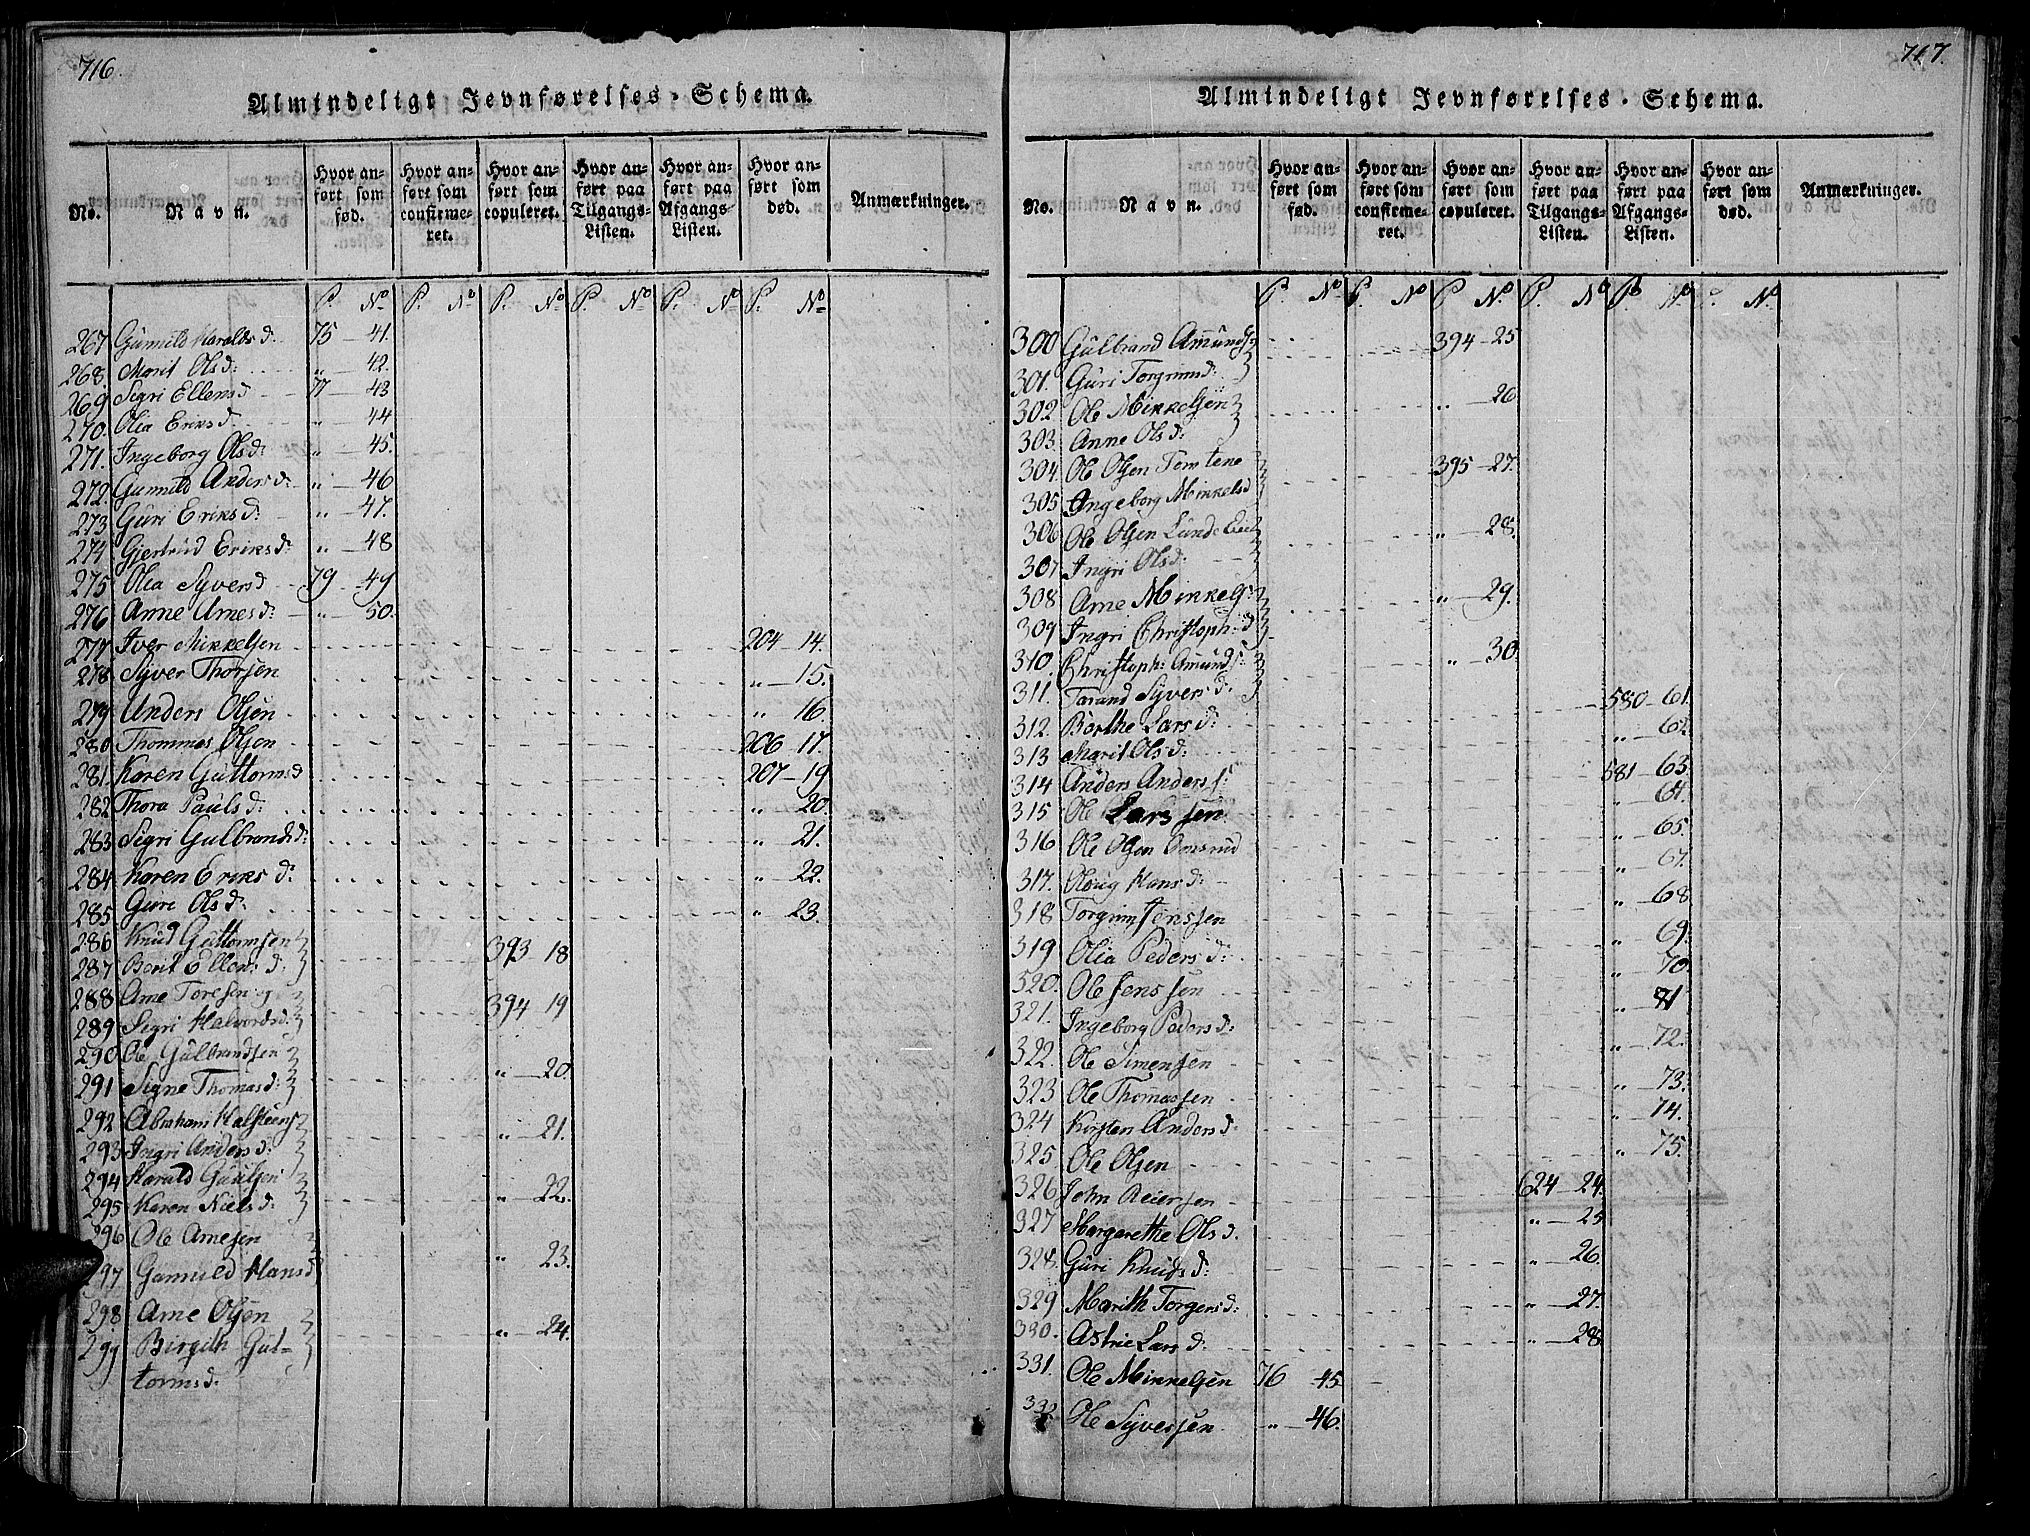 716.
Almindeligt Jevnførelses-Schema.
No. Navn. Hvor anført som fød. Hvor anført som confirmeret. Hvor anført som copuleret. Hvor anført paa Tilgangs-Listen. Hvor anført paa Afgangs-Listen. Hvor anført som død. Anmærkninger.
P. No P. No P. No P. No P. No P. No
267 Gunnild Haralds d: 75 - 41.
268. Marit Ols d: " - 42.
269 Sigri Ellens d 77 - 43
270. Olia Eriks d " - 44
271. Ingeborg Ols d: " - 45.
272. Gunnild Anders d: " - 46
273 Guri Eriks d: " - 47.
274 Gjertrud Eriks d: " - 48
275 Olia Syvers d 79 - 49
276 Anne Arnes d: " - 50.
277 Iver Mikkelsen 204 - 14.
278 Syver Thorsen " - 15.
279 Anders Olsen " 16
280 Thommas Olsen 206 - 17.
281. Karen Guttorms d 207 - 19
282 Thora Pauls d: " 20.
283 Sigri Gulbrands d: " - 21.
284 Karen Eriks d: " - 22.
285 Guri Ols d: " - 23.
286 Knud Guttormsen
287 Berit Ellens d: 393 18
288 Arne Toresen
289 Sigri Halvords d: 394 19
290 Ole Gulbrandsen
291 Signe Thomas d: " - 20.
292 Abraham Halsteens
293 Ingri Anders d: " - 21.
294 Harald Guulsen
295 Karen Niels d: " - 22.
296 Ole Arnesen
297 Gunnild Hans d " 23.
298 Arne Olsen
299 Birgith Gut- " - 24.
torms d:
717
Almindeligt Jevnførelses-Schema.
No. Navn. Hvor anført som fød. Hvor anført som confirmeret. Hvor anført som copuleret. Hvor anført paa Tilgangs-Listen. Hvor anført paa Afgangs-Listen. Hvor anført som død. Anmærkninger.
P. No P. No P. No P. No P. No P. No
300 Gulbrand Amunds 394 - 25
301. Guri Torgrims d:
302 Ole Mikkelsen " - 26
303. Anne Ols d:
304. Ole Olsen Tomtene 395 - 27.
305 Ingeborg Mikkels d
306 Ole Olsen Lunde Eie " - 28.
307 Ingri Ols d:
308 Arne Mikkels: " - 29.
309 Ingri Christoph: d
310. Christoph: Amunds: " - 30.
311. Tarand Syvers d: 580 - 61.
312. Berthe Lars d: " - 62
313 Marit Ols d: 581 - 63.
314 Anders Anders s: " - 64.
315 Ole Larssen " - 65.
316 Ole Olsen " - 67.
317. Oloug Hans d: " - 68
318 Torgrim Jenssen " - 69.
319 Olia Peders d: " - 70.
520. Ole Jenssen " - 71
321. Ingeborg Peders d: " - 72.
322. Ole Simensen " - 73.
323 Ole Thomassen " - 74.
324 Kirsten Anders d: " - 75.
325. Ole Olsen
326 John Reiersen 624 - 24.
327 Margarethe Ols d. " - 25
328. Guri Knuds d: " - 26.
329 Marith Torgers d: " - 27.
330. Astrie Lars d: " - 28
331. Ole Mikkelsen 76 45
332 Ole Syversen " - 46.